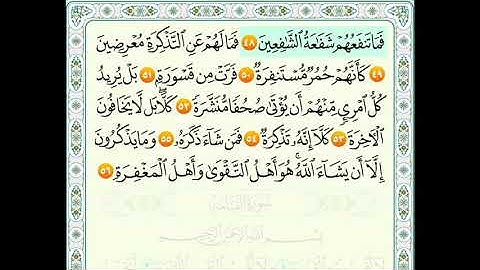 فَمَا تَنفَعُهُمْ شَفَاعَةُ الشَّافِعِينَ ٤٨ فَمَا لَهُمْ عَنِ التَّذْكِرَةِ مُعْرِضِينَ
٤٩ كَأَنَّهُمْ حُمُرٌ مُّسْتَنفِرَةٌ ٥٠ فَرَّتْ مِن قَسْوَرَةٍ ٥١ بَلْ يُرِيدُ
كُلُّ امْرِئٍ مِّنْهُمْ أَن يُؤْتَىٰ صُحُفًا مُّنَشَّرَةً ٥٢ كَلَّا بَل لَّا يَخَافُونَ
الْآخِرَةَ ٥٣ كَلَّا إِنَّهُ تَذْكِرَةٌ ٥٤ فَمَن شَاءَ ذَكَرَهُ ٥٥ وَمَا يَذْكُرُونَ
إِلَّا أَن يَشَاءَ اللَّهُ ۚ هُوَ أَهْلُ التَّقْوَىٰ وَأَهْلُ الْمَغْفِرَةِ ٥٦
سُورَةُ القِيَامَةِ
بِسْمِ اللَّهِ الرَّحْمَٰنِ الرَّحِيمِ